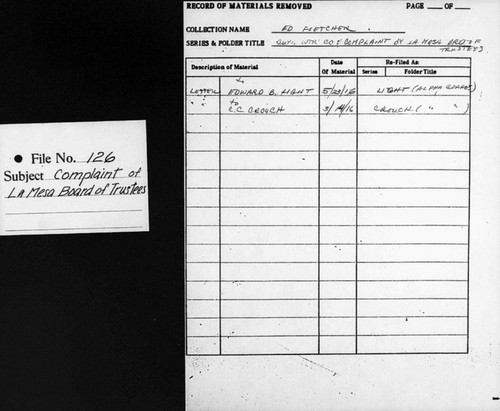 RECORD OF MATERIALS REMOVED PAGE ___ OF ___
COLLECTION NAME ED FLETCHER
SERIES & FOLDER TITLE CUYA. WTR. CO: COMPLAINT BY LA MESA BRD OF
TRUSTEES
Description of Material Date Of Material Re-Filed As:
Series Folder Title
LETTER to EDWARD B. LIGHT 5/23/16 LIGHT (ALPHA CORRES)
to C.C. CROUCH 3/14/16 CROUCH ( " " )
File No. 126
Subject Complaint of
La Mesa Board of Trustees